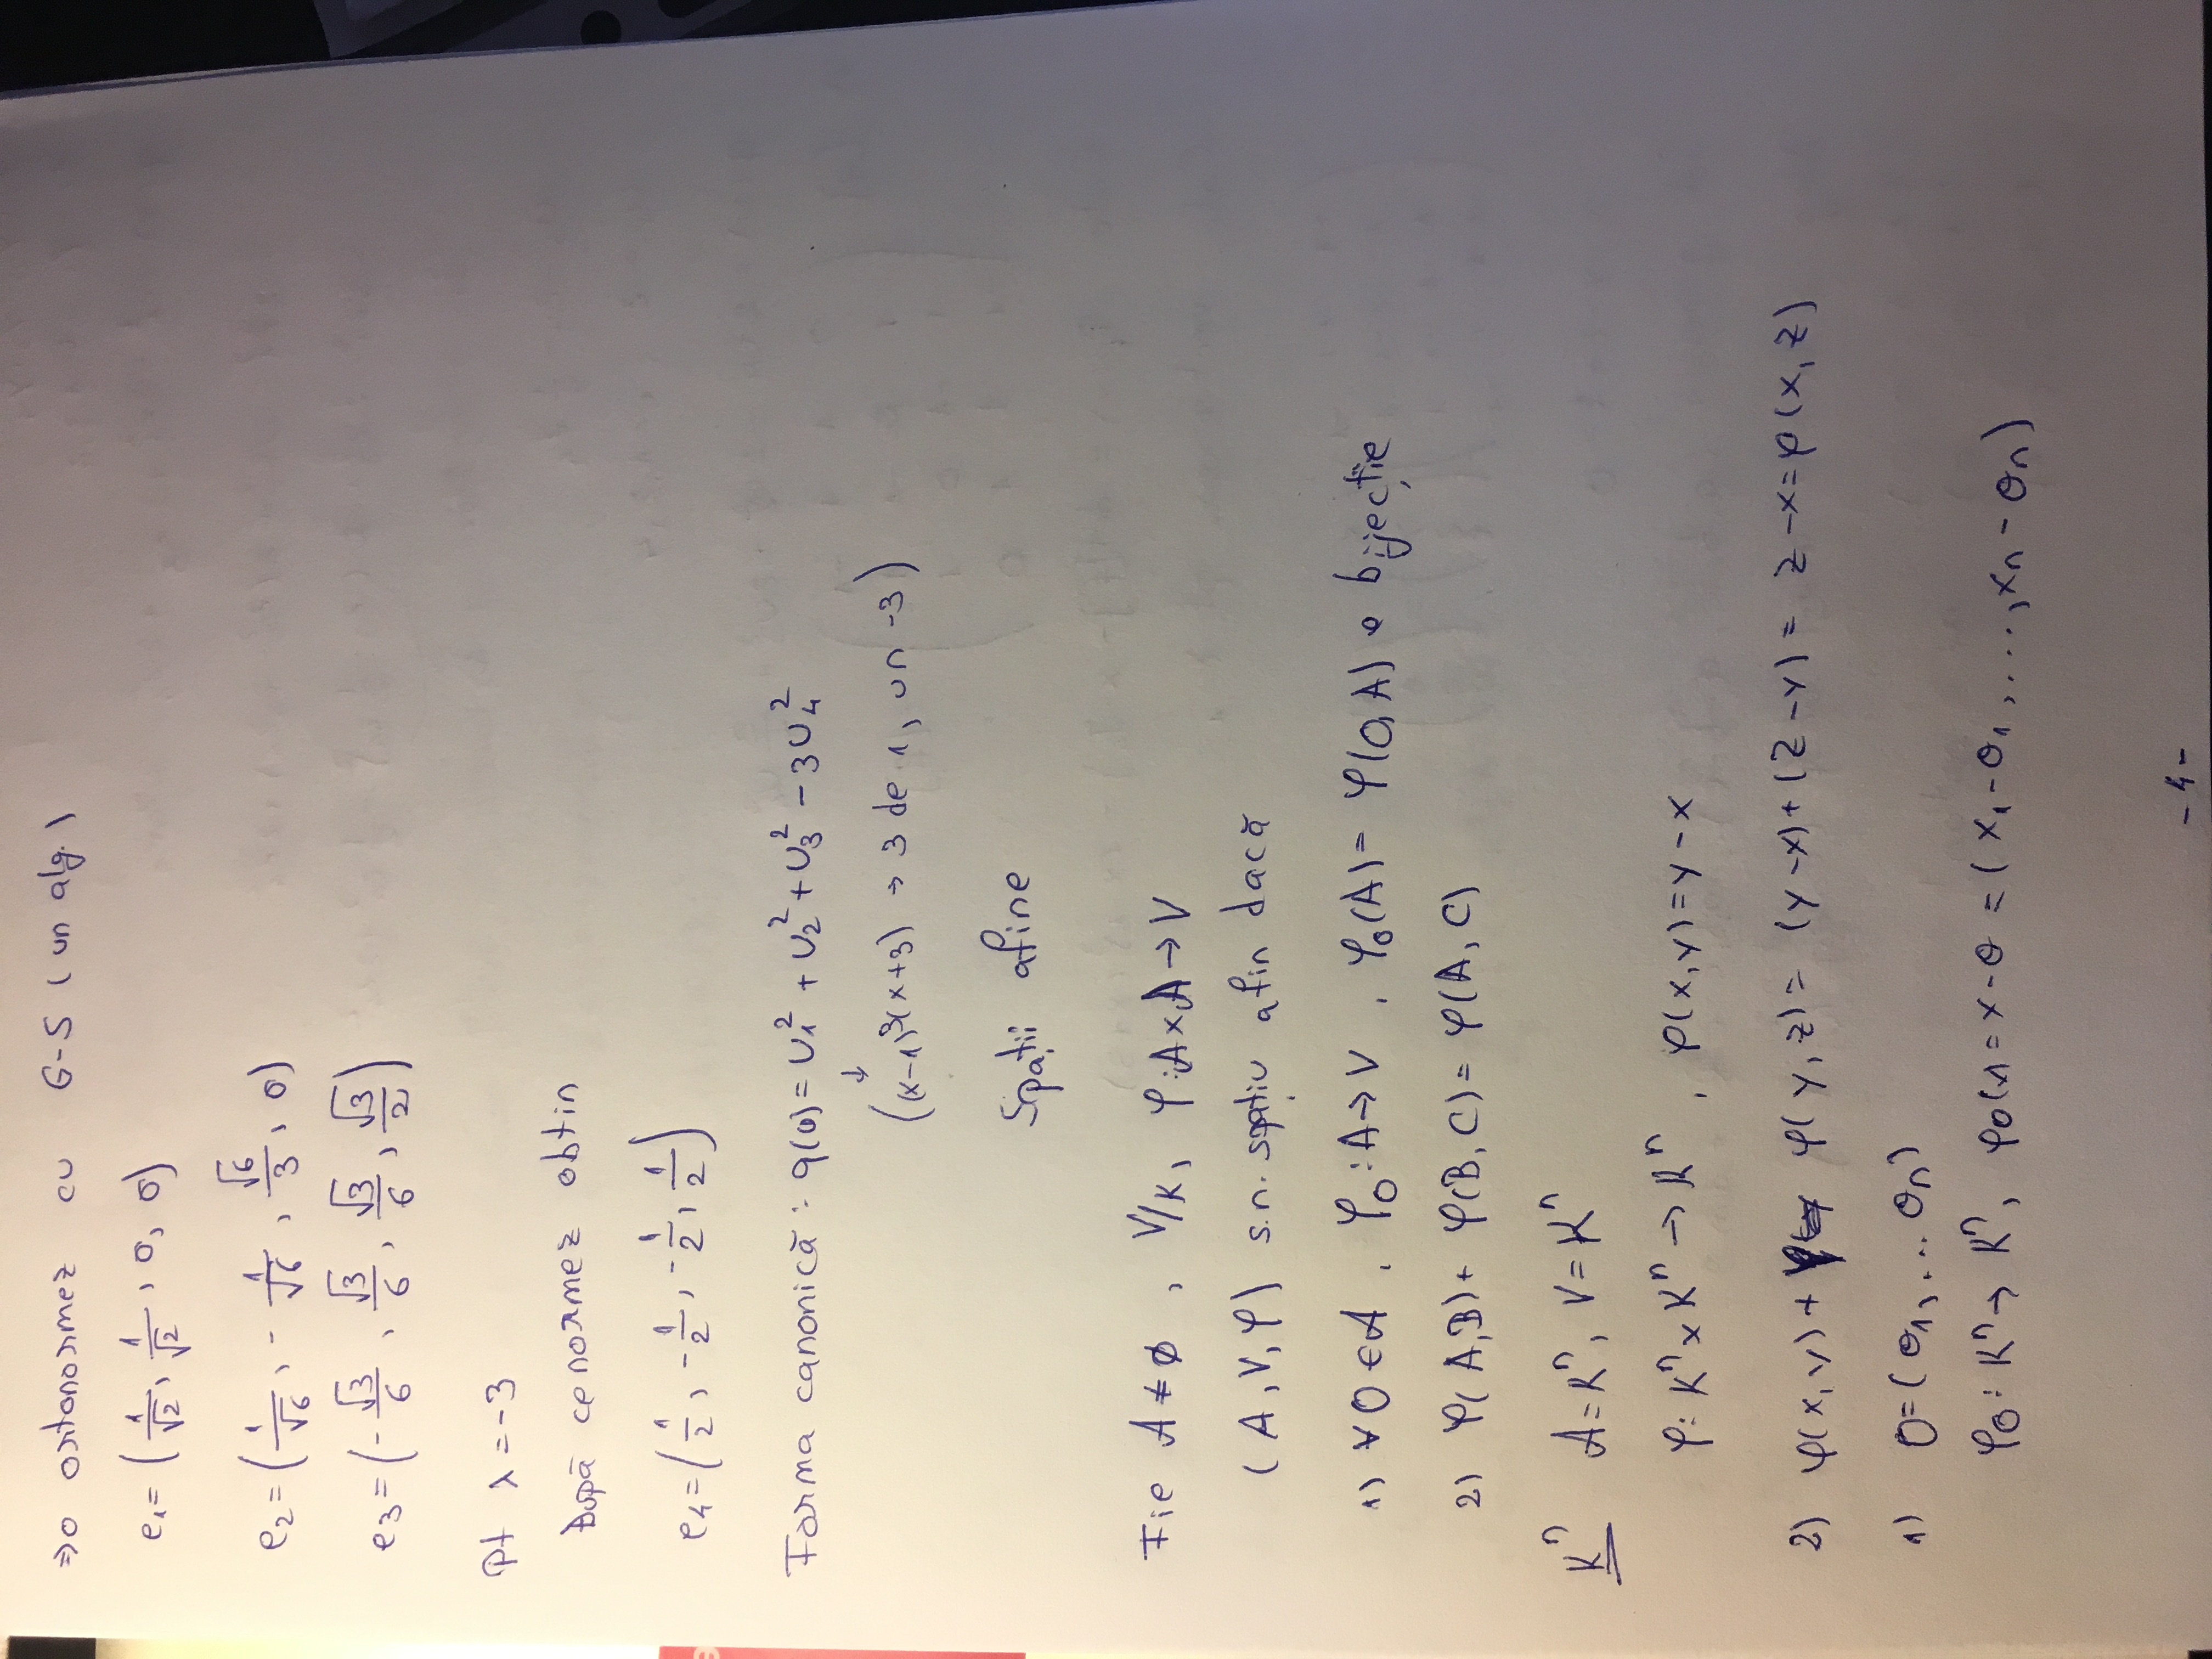 ⇒ o ortonormez cu G-S (un alg.)
e₁ = (1/√2, 1/√2, 0, 0)
e₂ = (1/√6, -1/√6, √6/3, 0)
e₃ = (-√3/6, √3/6, √3/6, √3/2)
Pt λ = -3
După ce normez obtin
e₄ = (1/2, -1/2, -1/2, 1/2)
Forma canonică: q(v) = v₁² + v₂² + v₃² - 3v₄²
↓
((x-1)³(x+3) → 3 de 1, un -3)
Spații afine
Fie A ≠ ∅, V/K, φ: A×A → V
(A, V, φ) s.n. spațiu afin dacă
1) ∀ O ∈ A, φ_O: A → V, φ_O(A) = φ(O, A) e bijecție
2) φ(A,B) + φ(B,C) = φ(A,C)
Kⁿ A = Kⁿ, V = Kⁿ
φ: Kⁿ × Kⁿ → Kⁿ, φ(x,y) = y - x
2) φ(x,y) + φ(y,z) = (y-x) + (z-y) = z - x = φ(x,z)
1) O = (θ₁, ... θₙ)
φ_θ: Kⁿ → Kⁿ, φ_θ(x) = x - θ = (x₁ - θ₁, ...., xₙ - θₙ)
- 4 -